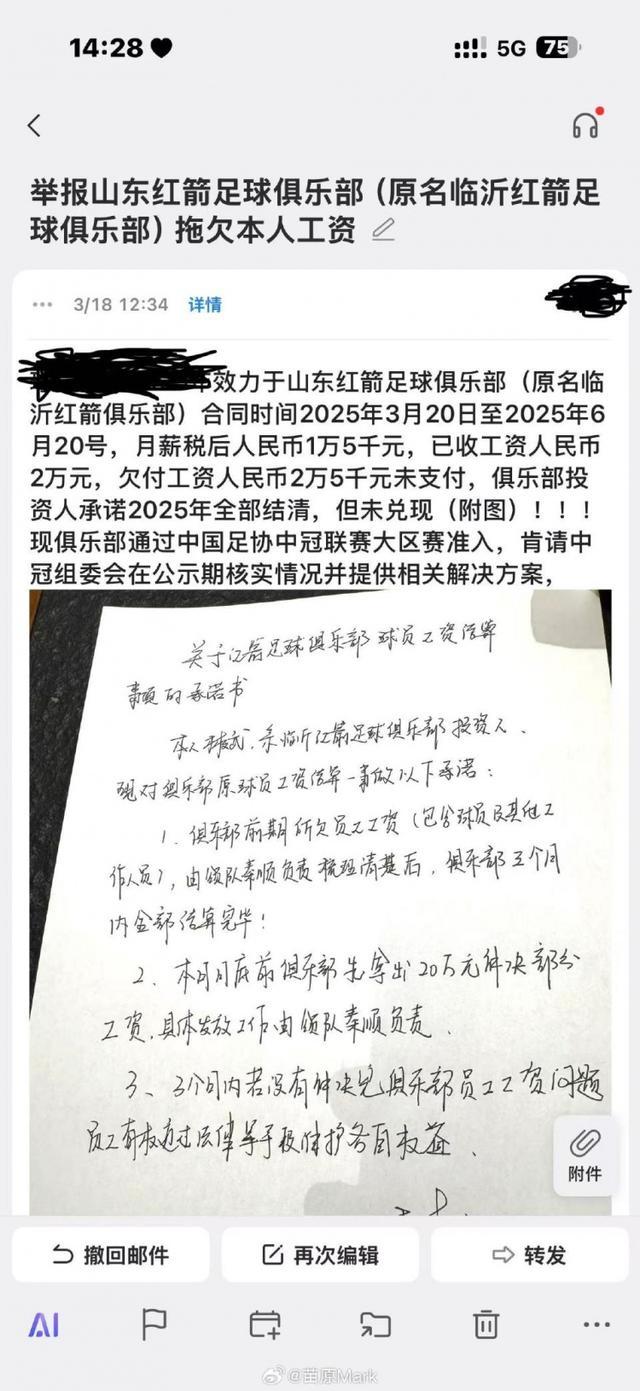 14:28
5G 75
举报山东红箭足球俱乐部（原名临沂红箭足
球俱乐部）拖欠本人工资
3/18 12:34 详情
效力于山东红箭足球俱乐部（原名临
沂红箭俱乐部）合同时间2025年3月20日至2025年6
月20号，月薪税后人民币1万5千元，已收工资人民币
2万元，欠付工资人民币2万5千元未支付，俱乐部投
资人承诺2025年全部结清，但未兑现（附图）！！！
现俱乐部通过中国足协中冠联赛大区赛准入，肯请中
冠组委会在公示期核实情况并提供相关解决方案，
关于红箭足球俱乐部球员工资结算
事项的承诺书
本人 系临沂红箭足球俱乐部投资人、
现对俱乐部原球员工资结算一事做以下承诺：
1、俱乐部前期所欠员工工资（包含球员及其他工
作人员），由领队秦顺负责梳理清楚后，俱乐部三个月
内全部结算完毕！
2、本月月底前俱乐部先拿出20万元解决部分
工资，具体发放工作由领队秦顺负责、
3、3个月内若没有解决完俱乐部员工工资问题
员工有权通过法律等手段维护各自权益、
附件
撤回邮件 再次编辑 转发
AI
@苗原Mark